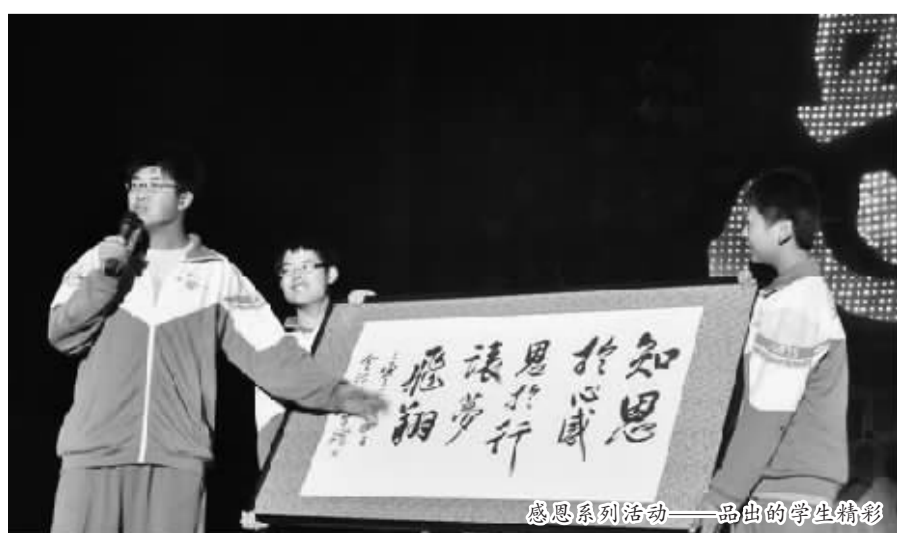 知恩
於心感
恩於行
讓夢
飛翔
感恩系列活动——品出的学生精彩